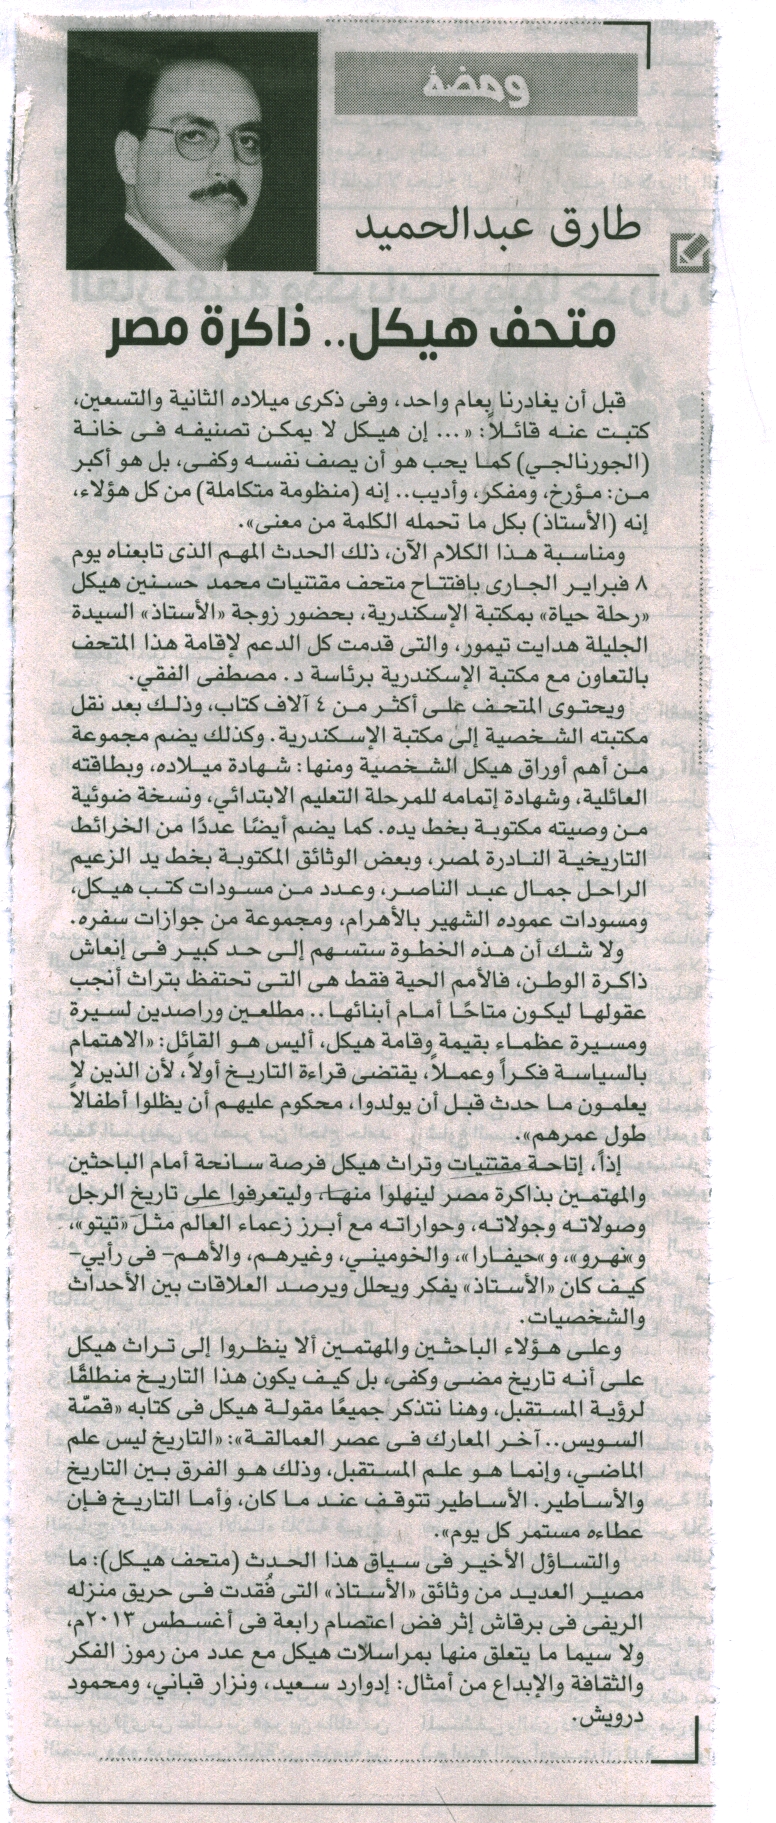 ومضة
طارق عبدالحميد
متحف هيكل.. ذاكرة مصر
قبل أن يغادرنا بعام واحد، وفى ذكرى ميلاده الثانية والتسعين،
كتبت عنه قائلاً: «... إن هيكل لا يمكن تصنيفه فى خانة
(الجورنالجي) كما يحب هو أن يصف نفسه وكفى، بل هو أكبر
من: مؤرخ، ومفكر، وأديب.. إنه (منظومة متكاملة) من كل هؤلاء،
إنه (الأستاذ) بكل ما تحمله الكلمة من معنى».
ومناسبة هذا الكلام الآن، ذلك الحدث المهم الذى تابعناه يوم
٨ فبراير الجارى بافتتاح متحف مقتنيات محمد حسنين هيكل
«رحلة حياة» بمكتبة الإسكندرية، بحضور زوجة «الأستاذ» السيدة
الجليلة هدايت تيمور، والتى قدمت كل الدعم لإقامة هذا المتحف
بالتعاون مع مكتبة الإسكندرية برئاسة د. مصطفى الفقي.
ويحتوى المتحف على أكثر من ٤ آلاف كتاب، وذلك بعد نقل
مكتبته الشخصية إلى مكتبة الإسكندرية. وكذلك يضم مجموعة
من أهم أوراق هيكل الشخصية ومنها: شهادة ميلاده، وبطاقته
العائلية، وشهادة إتمامه للمرحلة التعليم الابتدائي، ونسخة ضوئية
من وصيته مكتوبة بخط يده. كما يضم أيضًا عددًا من الخرائط
التاريخية النادرة لمصر، وبعض الوثائق المكتوبة بخط يد الزعيم
الراحل جمال عبد الناصر، وعدد من مسودات كتب هيكل،
ومسودات عموده الشهير بالأهرام، ومجموعة من جوازات سفره.
ولا شك أن هذه الخطوة ستسهم إلى حد كبير فى إنعاش
ذاكرة الوطن، فالأمم الحية فقط هى التى تحتفظ بتراث أنجب
عقولها ليكون متاحًا أمام أبنائها.. مطلعين وراصدين لسيرة
ومسيرة عظماء بقيمة وقامة هيكل، أليس هو القائل: «الاهتمام
بالسياسة فكراً وعملاً، يقتضى قراءة التاريخ أولاً، لأن الذين لا
يعلمون ما حدث قبل أن يولدوا، محكوم عليهم أن يظلوا أطفالاً
طول عمرهم».
إذاً، إتاحة مقتنيات وتراث هيكل فرصة سانحة أمام الباحثين
والمهتمين بذاكرة مصر لينهلوا منها، وليتعرفوا على تاريخ الرجل
وصولاته وجولاته، وحواراته مع أبرز زعماء العالم مثل «تيتو»،
و»نهرو»، و»جيفارا»، والخوميني، وغيرهم، والأهم– فى رأيي–
كيف كان «الأستاذ» يفكر ويحلل ويرصد العلاقات بين الأحداث
والشخصيات.
وعلى هؤلاء الباحثين والمهتمين ألا ينظروا إلى تراث هيكل
على أنه تاريخ مضى وكفى، بل كيف يكون هذا التاريخ منطلقًا
لرؤية المستقبل، وهنا نتذكر جميعًا مقولة هيكل فى كتابه «قصّة
السويس.. آخر المعارك فى عصر العمالقة»: «التاريخ ليس علم
الماضي، وإنما هو علم المستقبل، وذلك هو الفرق بين التاريخ
والأساطير. الأساطير تتوقف عند ما كان، وأما التاريخ فإن
عطاءه مستمر كل يوم».
والتساؤل الأخير فى سياق هذا الحدث (متحف هيكل): ما
مصير العديد من وثائق «الأستاذ» التى فُقدت فى حريق منزله
الريفى فى برقاش إثر فض اعتصام رابعة فى أغسطس ٢٠١٣م،
ولا سيما ما يتعلق منها بمراسلات هيكل مع عدد من رموز الفكر
والثقافة والإبداع من أمثال: إدوارد سعيد، ونزار قباني، ومحمود
درويش.